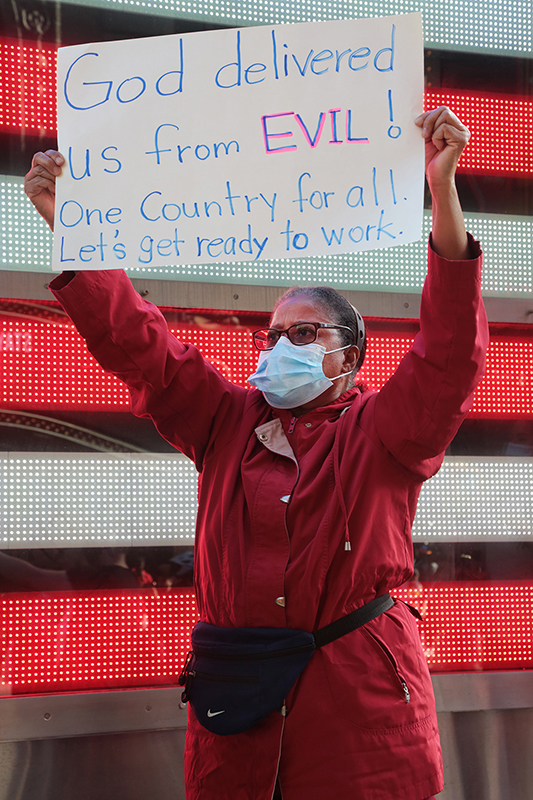 God delivered
us from EVIL!
One Country for all.
Let's get ready to work.